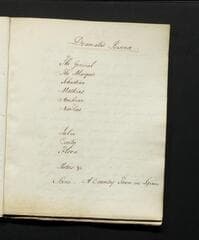 Dramatis Personæ
The General
The Marquis
Sebastian
Mathias
Ambrose
Nicolas
Julia
Cecily
Flora
Scene – A Country Town in Spain